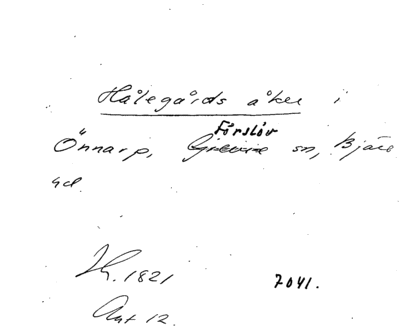 Hålegårds åker i
Förslöv
Önnarp, Grevie sn, Bjäre
hd.
Lh. 1821
7041.
Akt 12.